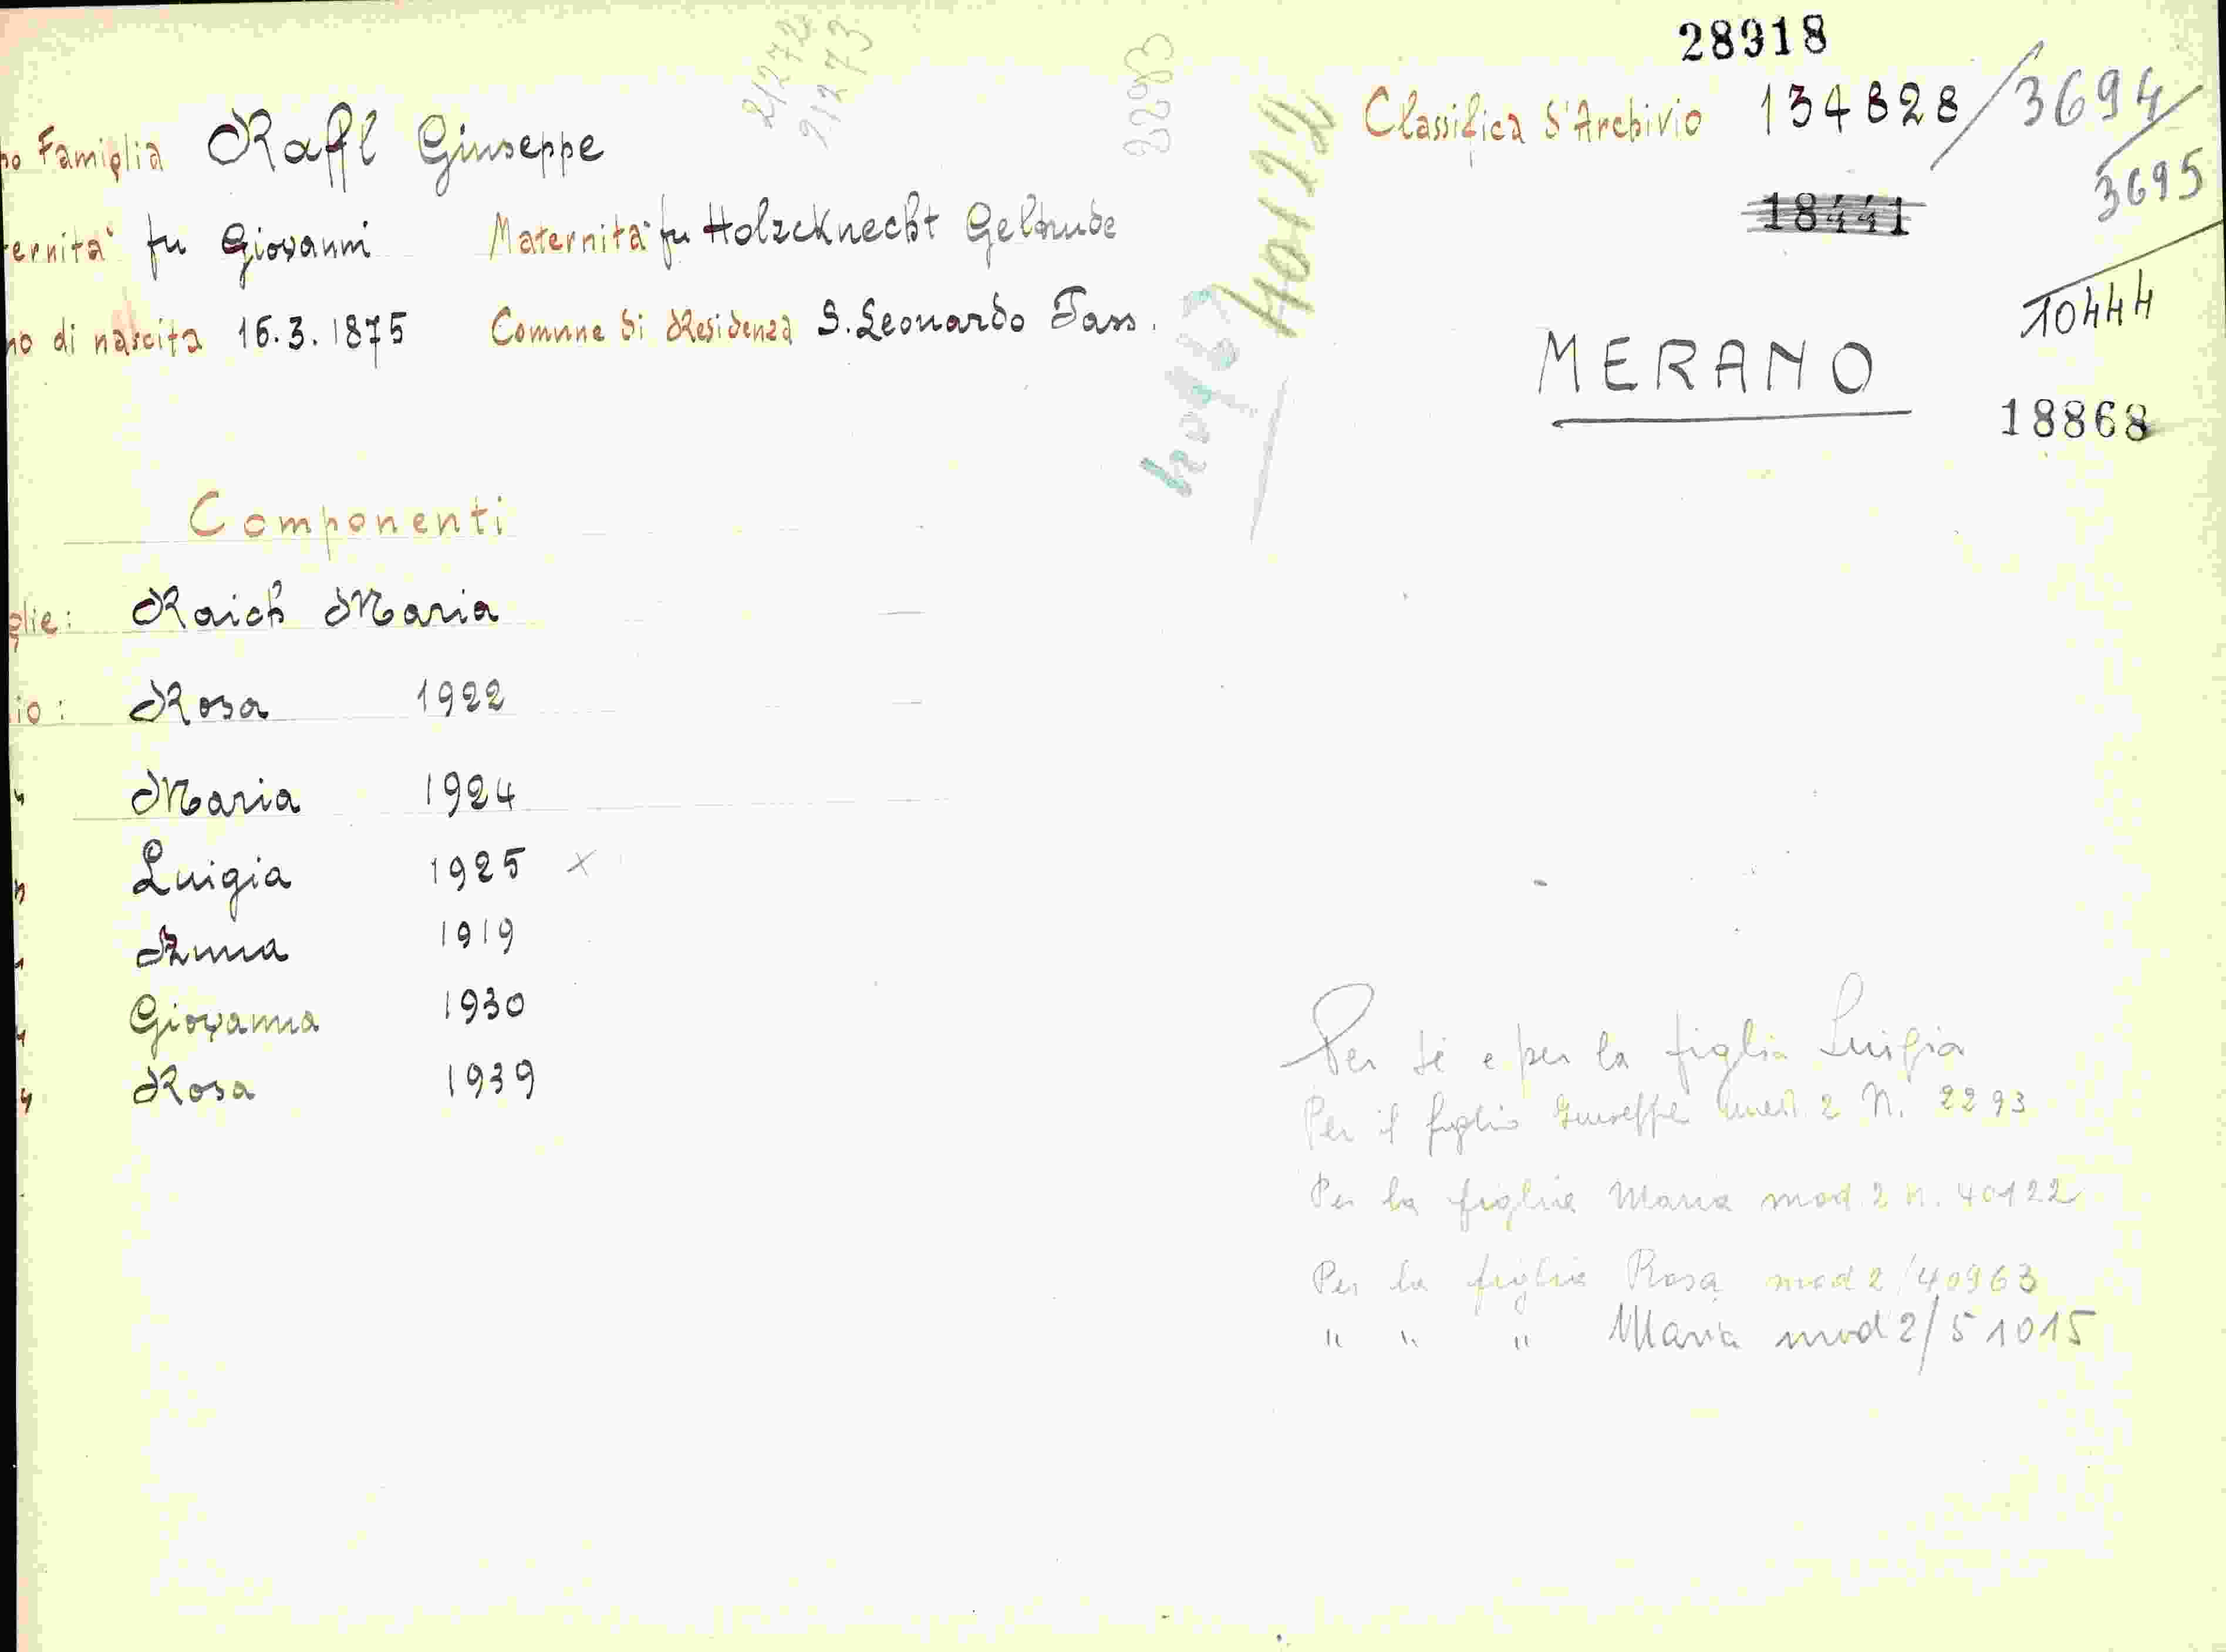 28918
21272
21273
2293
40122
40963
po Famiglia Raffl Giuseppe
Classifica d'Archivio 134828/3694/
3695
ernità fu Giovanni Maternità fu Holzcknecht Geltrude
18441
no di nascita 16.3.1875 Comune di Residenza S. Leonardo Pass.
10444
MERANO
18868
Componenti
glie: Raich Maria
io: Rosa 1922
" Maria 1924
" Luigia 1925 x
" Anna 1919
" Giovanna 1930
" Rosa 1939
Per sé e per la figlia Luigia
Per il figlio Giuseppe mod. 2 N. 2293
Per la figlia Maria mod. 2 n. 40122
Per la figlia Rosa mod 2/40963
" " " Maria mod 2/51015